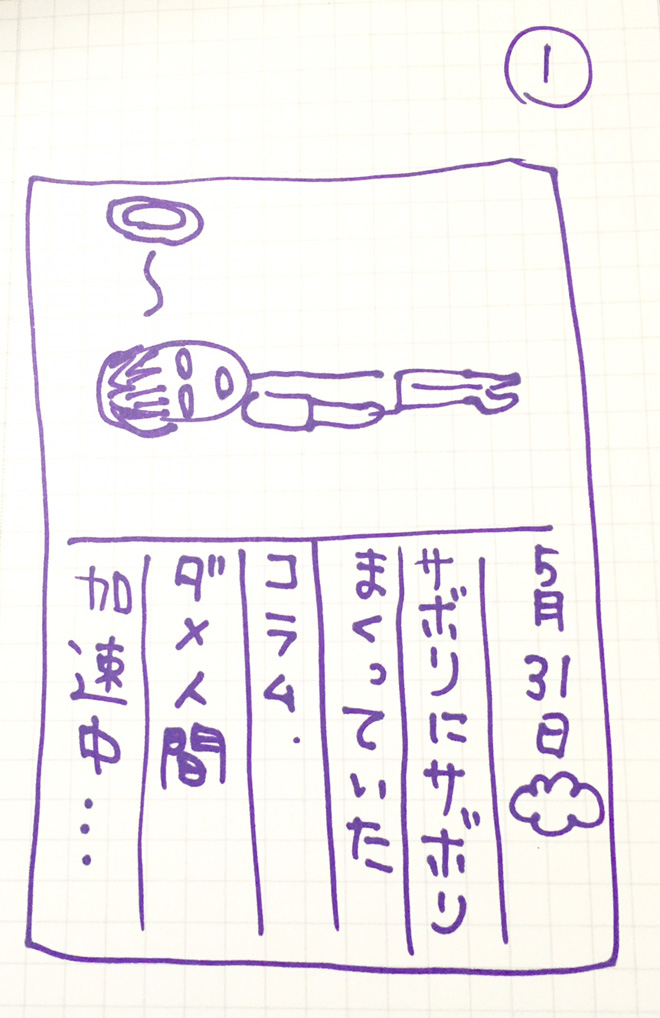 1
5月31日
サボりにサボり
まくっていた
コラム.
ダメ人間
加速中...